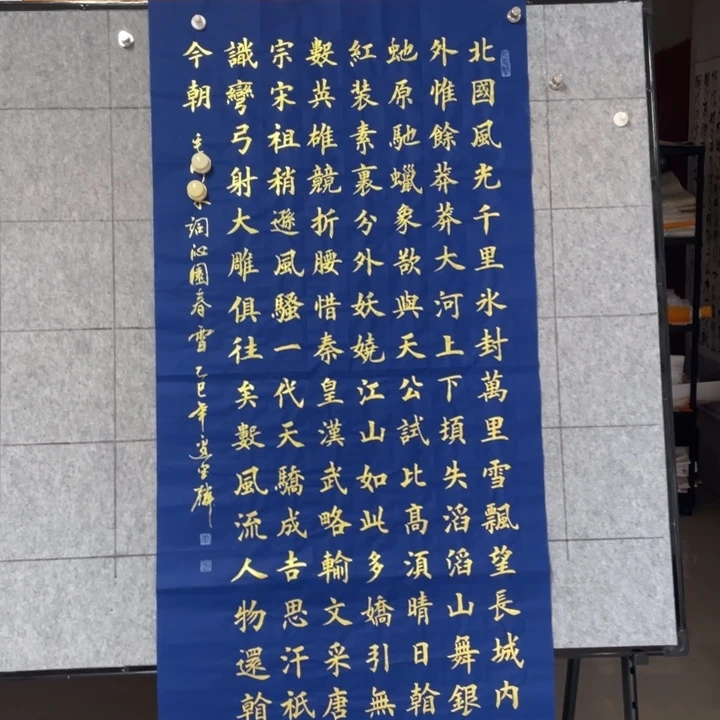 北國風光千里氷封萬里雪飄望長城内
外惟餘莽莽大河上下頃失滔滔山舞銀
虵原馳蠟象欲與天公試比高湏晴日翰
紅装素裹分外妖嬈江山如此多嬌引無
數英雄競折腰惜秦皇漢武略輸文采唐
宗宋祖稍遜風騷一代天驕成吉思汗祇
識彎弓射大雕俱往矣數風流人物還翰
今朝
毛詞沁園春雪乙巳年麟